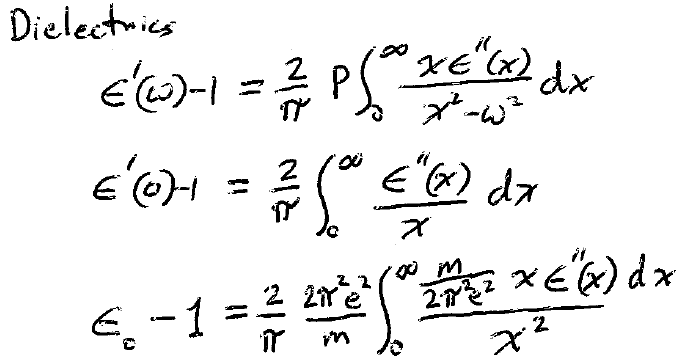 Dielectrics
ϵ'(ω)-1 = 2/π P∫₀^∞ xϵ''(x)/(x²-ω²) dx
ϵ'(0)-1 = 2/π ∫₀^∞ ϵ''(x)/x dx
ϵ₀ - 1 = 2/π 2π²e²/m ∫₀^∞ (m/(2π²e²) xϵ''(x) dx)/x²